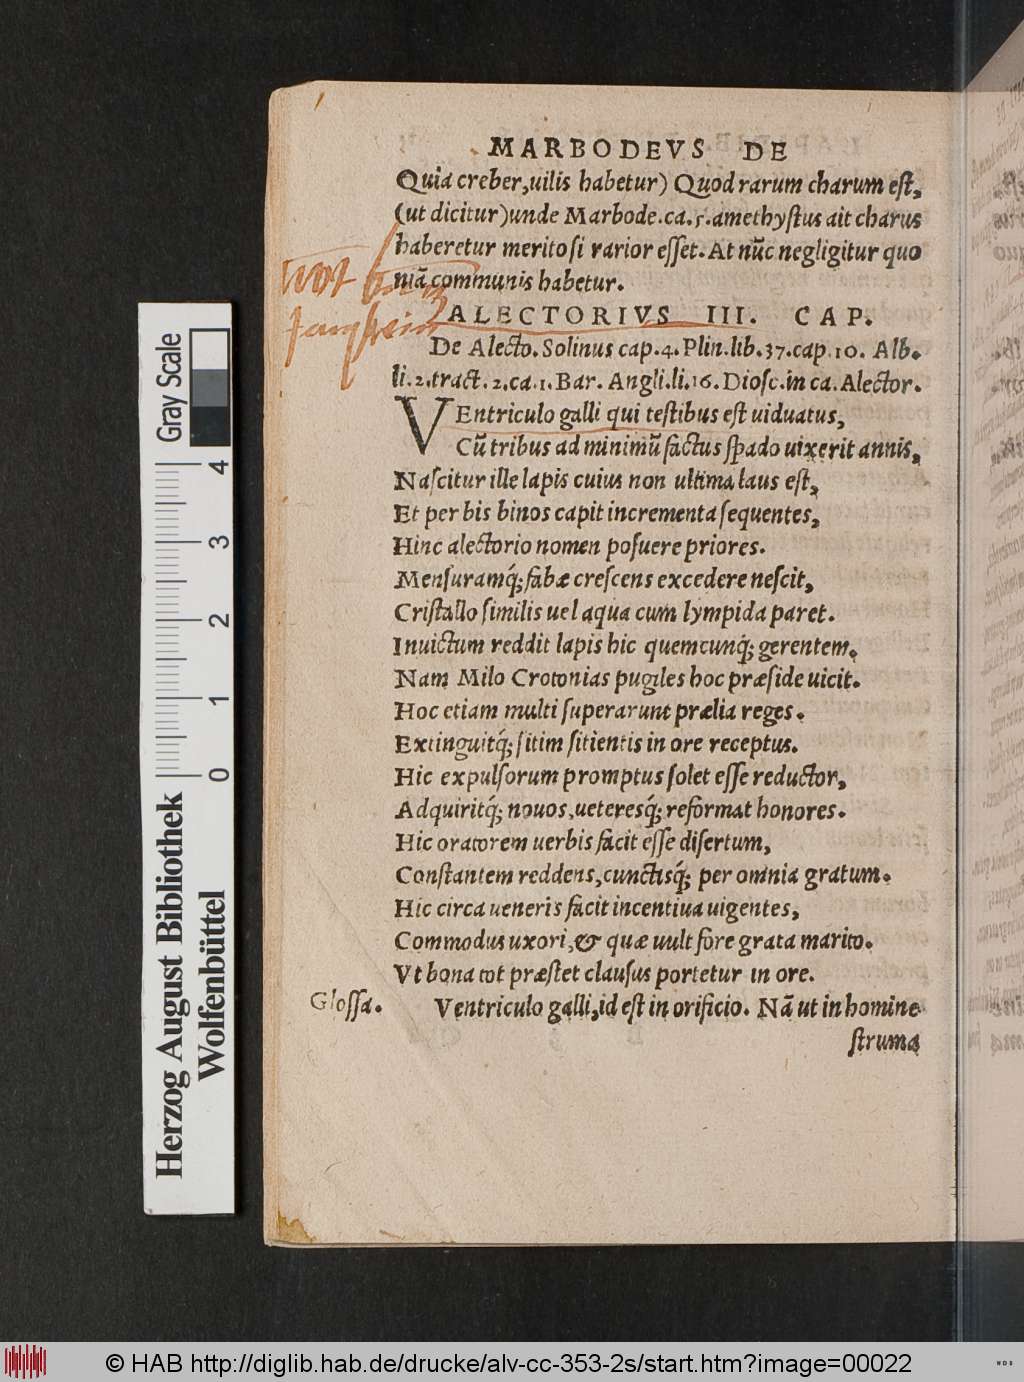 MARBODEVS DE
Quia creber, uilis habetur) Quod rarum charum est,
(ut dicitur) unde Marbode. ca. 5. amethystus ait charus
haberetur merito si rarior esset. At nūc negligitur quo
niā communis habetur.
ALECTORIVS III. CAP.
De Alecto. Solinus cap. 4. Plin. lib. 37. cap. 10. Alb.
li. 2. tract. 2. ca. 1. Bar. Angli. li. 16. Diosc. in ca. Alector.
VEntriculo galli qui testibus est uiduatus,
Cū tribus ad minimū factus spado uixerit annis,
Nascitur ille lapis cuius non ultima laus est,
Et per bis binos capit incrementa sequentes,
Hinc alectorio nomen posuere priores.
Mensuramq́; fabæ crescens excedere nescit,
Cristallo similis uel aqua cum lympida paret.
Inuictum reddit lapis hic quemcunq́; gerentem.
Nam Milo Crotonias pugiles hoc præside uicit.
Hoc etiam multi superarunt prælia reges.
Extinguitq́; sitim sitientis in ore receptus.
Hic expulsorum promptus solet esse reductor,
Adquiritq́; nouos, ueteresq́; reformat honores.
Hic oratorem uerbis facit esse disertum,
Constantem reddens, cunctisq́; per omnia gratum.
Hic circa ueneris facit incentiua uigentes,
Commodus uxori, & quæ uult fore grata marito.
Vt bona tot præstet clausus portetur in ore.
Glossa. Ventriculo galli, id est in orificio. Nā ut in homine
struma
Gray Scale
4
3
2
1
0
Herzog August Bibliothek
Wolfenbüttel
© HAB http://diglib.hab.de/drucke/alv-cc-353-2s/start.htm?image=00022
HAB